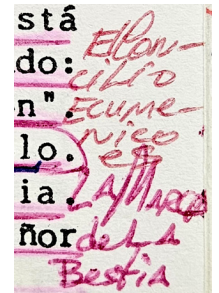 stá
do:
n".
lo.
ia.
ñor
El Con-
cilio
Ecume-
nico
es
LA MARCA
de LA
BestiA